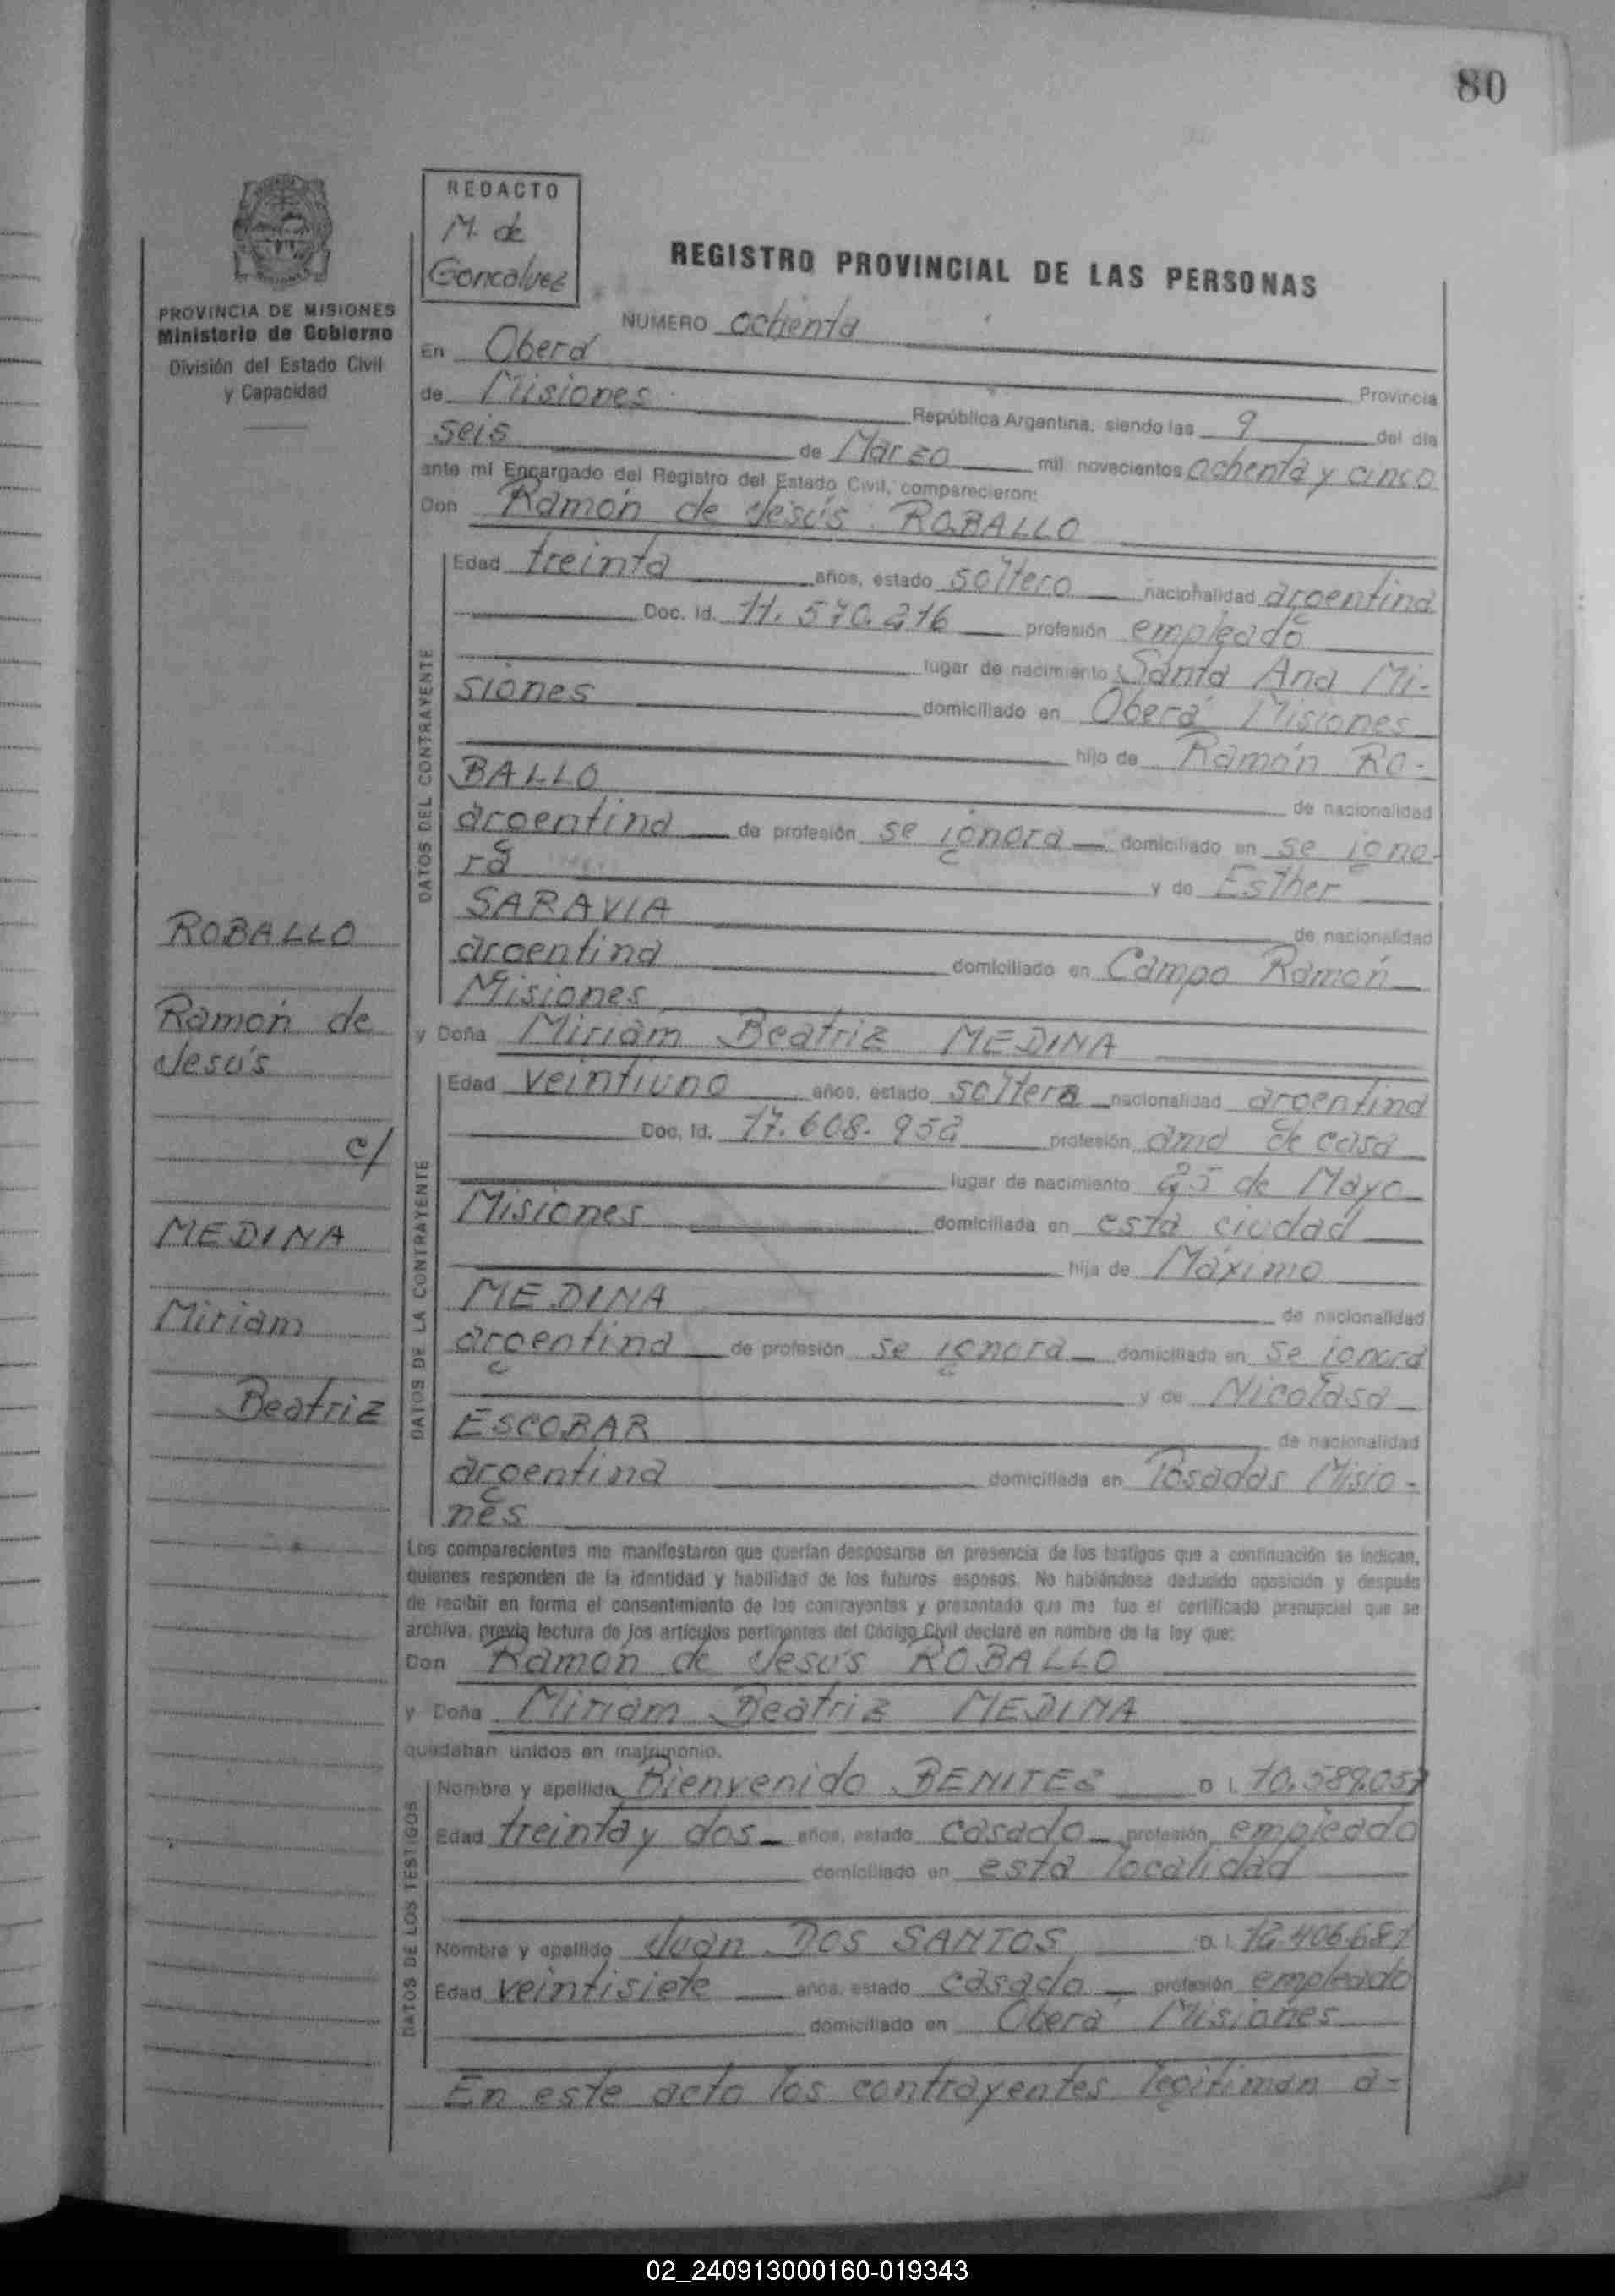 80
REDACTO
M. de
Goncalvez
PROVINCIA DE MISIONES
Ministerio de Gobierno
División del Estado Civil
y Capacidad
REGISTRO PROVINCIAL DE LAS PERSONAS
NUMERO ochenta
En Oberá Provincia
de Misiones República Argentina, siendo las 9 del día
seis de Marzo mil novecientos ochenta y cinco
ante mí Encargado del Registro del Estado Civil, comparecieron:
Don Ramón de Jesús ROBALLO
DATOS DEL CONTRAYENTE
Edad treinta años, estado soltero nacionalidad argentina
Doc. Id. 11.570.216 profesión empleado
lugar de nacimiento Santa Ana Mi-
siones domiciliado en Oberá Misiones
hijo de Ramón RO-
BALLO de nacionalidad
argentina de profesión se ignora domiciliado en se igno-
ra y de Esther
SARAVIA de nacionalidad
argentina domiciliado en Campo Ramón
Misiones
y Doña Miriam Beatriz MEDINA
DATOS DE LA CONTRAYENTE
Edad veintiuno años, estado soltera nacionalidad argentina
Doc. Id. 17.608.952 profesión ama de casa
lugar de nacimiento 25 de Mayo
Misiones domiciliada en esta ciudad
hija de Máximo
MEDINA de nacionalidad
argentina de profesión se ignora domiciliada en se ignora
y de Nicolasa
ESCOBAR de nacionalidad
argentina domiciliada en Posadas Misio-
nes
ROBALLO
Ramón de
Jesús
c/
MEDINA
Miriam
Beatriz
Los comparecientes me manifestaron que querían desposarse en presencia de los testigos que a continuación se indican,
quienes responden de la identidad y habilidad de los futuros esposos. No habiéndose deducido oposición y después
de recibir en forma el consentimiento de los contrayentes y presentado que me fue el certificado prenupcial que se
archiva, previa lectura de los artículos pertinentes del Código Civil declaré en nombre de la ley que:
Don Ramón de Jesús ROBALLO
y Doña Miriam Beatriz MEDINA
quedaban unidos en matrimonio.
DATOS DE LOS TESTIGOS
Nombre y apellido Bienvenido BENITEZ D.I. 10.589.057
Edad treinta y dos años, estado casado profesión empleado
domiciliado en esta localidad
Nombre y apellido Juan DOS SANTOS D.I. 12.406.681
Edad veintisiete años, estado casado profesión empleado
domiciliado en Oberá Misiones
En este acto los contrayentes legitiman a-
02_240913000160-019343